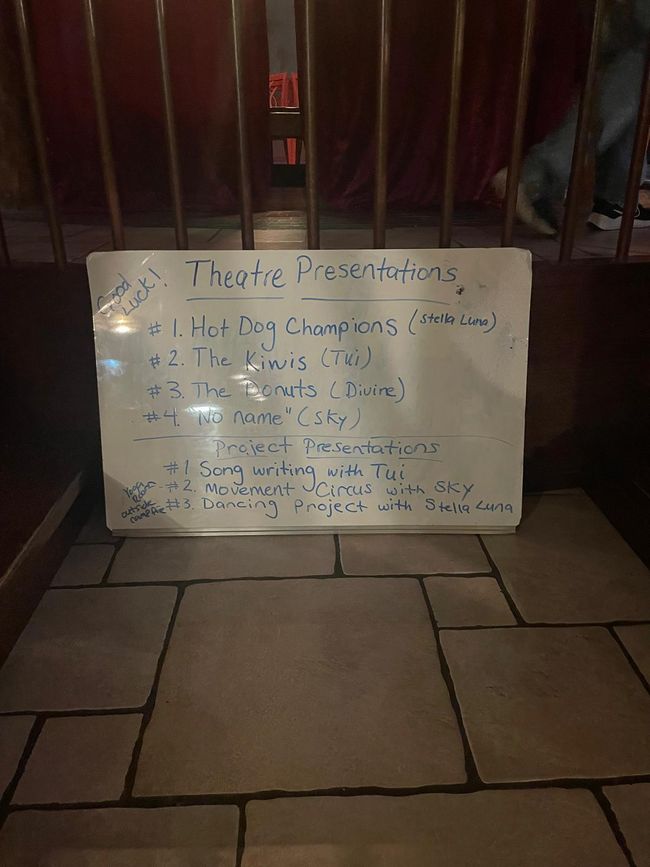 Good Luck!
Theatre Presentations
# 1. Hot Dog Champions (Stella Luna)
# 2. The Kiwis (Tui)
# 3. The Donuts (Divine)
#4. "No name" (Sky)
Project Presentations
#1 Song writing with Tui
#2. Movement Circus with SKY
outside campfire
#3. Dancing Project with Stella Luna